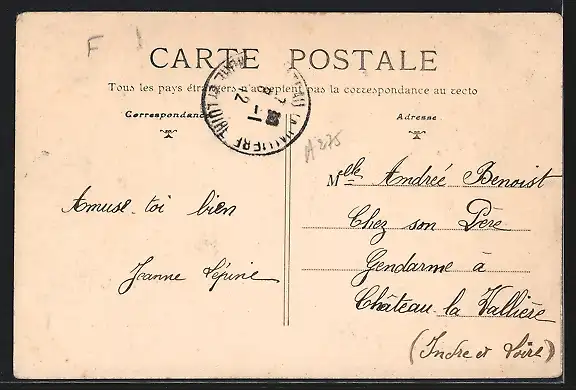 F
CARTE POSTALE
Tous les pays étrangers n'acceptent pas la correspondance au recto
Correspondance
Adresse
A 275
Amuse-toi bien
Jeanne Lépine
Melle Andrée Benoist
Chez son Père
Gendarme à
Château la Vallière
(Indre et Loire)